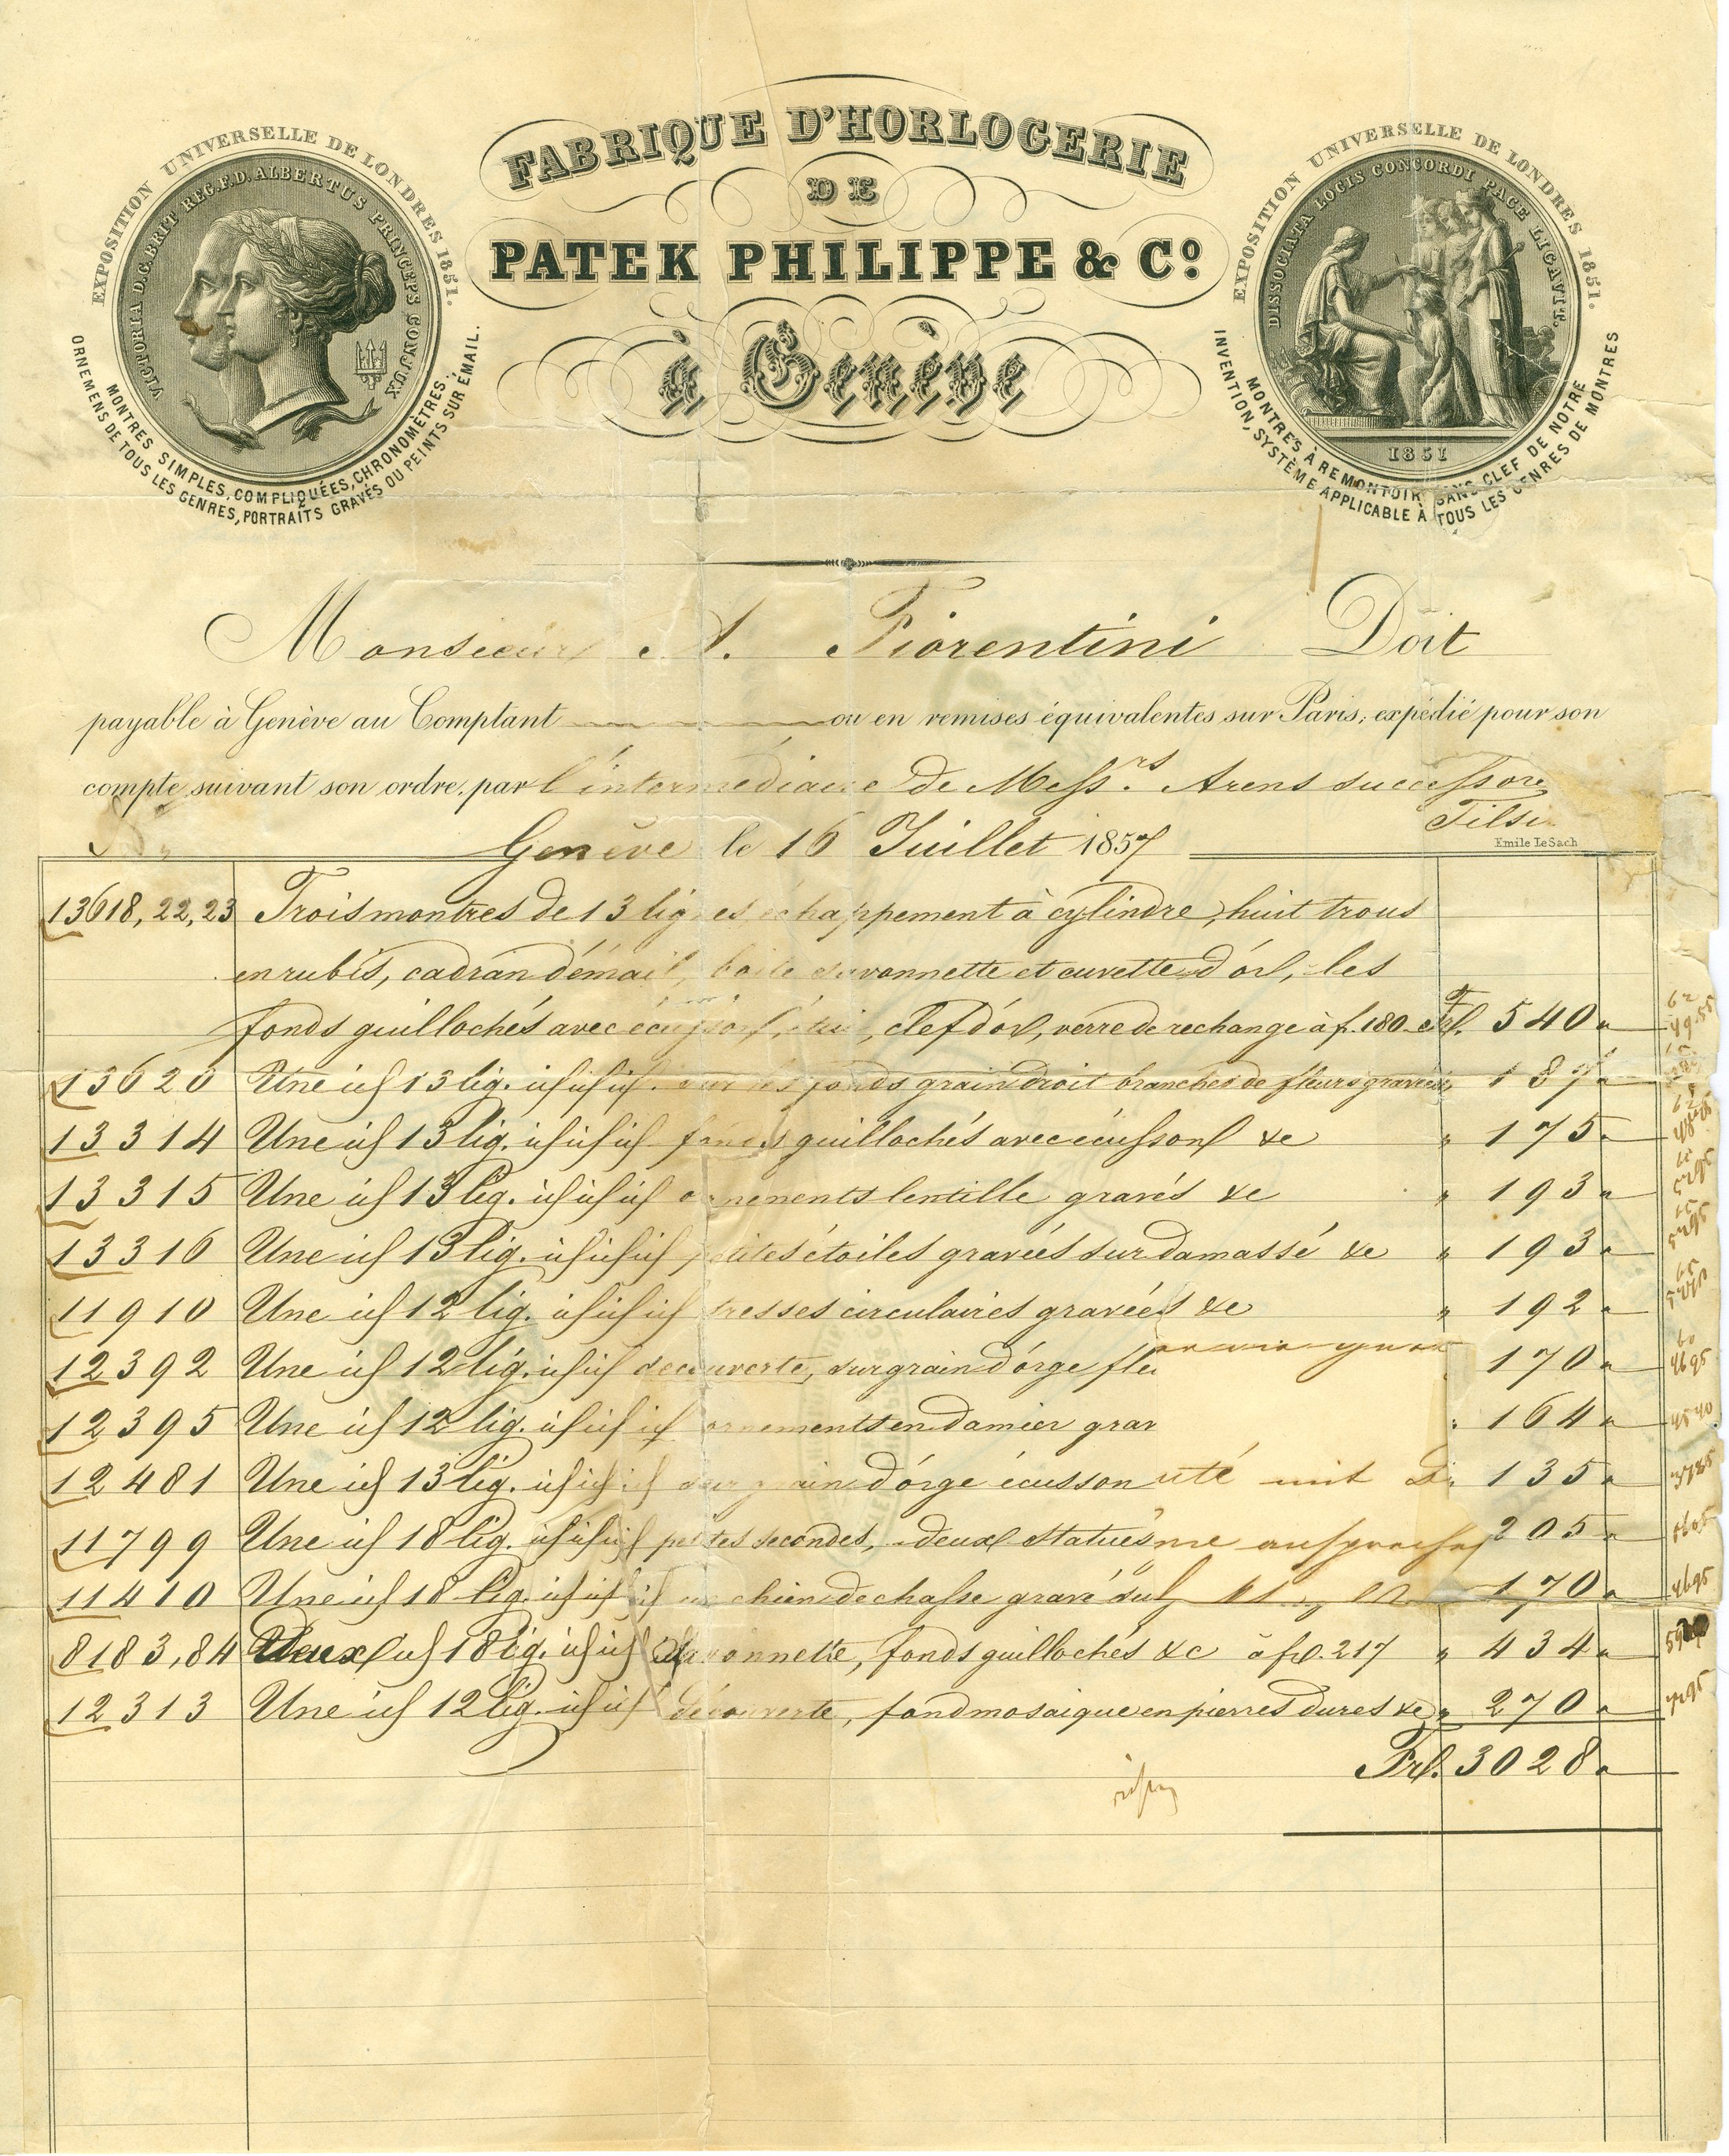 FABRIQUE D'HORLOGERIE
DE
PATEK PHILIPPE & Cº
à Genève
EXPOSITION UNIVERSELLE DE LONDRES 1851.
VICTORIA D.G.BRIT REG.F.D.ALBERTUS PRINCEPS CONJUX
MONTRES SIMPLES, COMPLIQUÉES, CHRONOMÈTRES,
ORNEMENS DE TOUS LES GENRES, PORTRAITS GRAVÉS OU PEINTS SUR ÉMAIL.
EXPOSITION UNIVERSELLE DE LONDRES 1851.
DISSOCIATA LOCIS CONCORDI PACE LIGAVIT.
1851
MONTRES À REMONTOIR SANS CLEF DE NOTRE
INVENTION, SYSTÈME APPLICABLE À TOUS LES GENRES DE MONTRES
Monsieur A. Fiorentini Doit
payable à Genève au Comptant ou en remises équivalentes sur Paris, expédié pour son
compte suivant son ordre, par l'intermédiaire de Messrs. Arens successore
Tilsi
Genève le 16 Juillet 1857
Emile LeSach
13618, 22, 23 Trois montres de 13 lignes échappement à cylindre, huit trous
en rubis, cadran d'émail, boite savonnette et cuvette d'or, les
fonds guillochés avec écusson, étui, clef d'or, verre de rechange à f. 180 Fr. 540
13620 Une id 13 lig. id id id sur les fonds grain droit branches de fleurs gravées 187
13314 Une id 13 lig. id id id fonds guillochés avec écusson &c " 175
13315 Une id 13 lig. id id id ornements lentille gravés &c " 193
13316 Une id 13 lig. id id id petites étoiles gravées sur damassé &c " 193
11910 Une id 12 lig. id id id tresses circulaires gravées &c " 192
12392 Une id 12 lig. id id découverte, sur grain d'orge fleu 170
12395 Une id 12 lig. id id id ornements en damier grav " 164
12481 Une id 13 lig. id id id sur grain d'orge écusson 135
11799 Une id 18 lig. id id id petites secondes, deux statues 205
11410 Une id 18 lig. id id id un chien de chasse gravé sur 170
8183, 84 Deux id 18 lig. id id savonnette, fonds guillochés &c à fr. 217 " 434
12313 Une id 12 lig. id id découverte, fond mosaique en pierres dures &c " 270
Fr. 3028